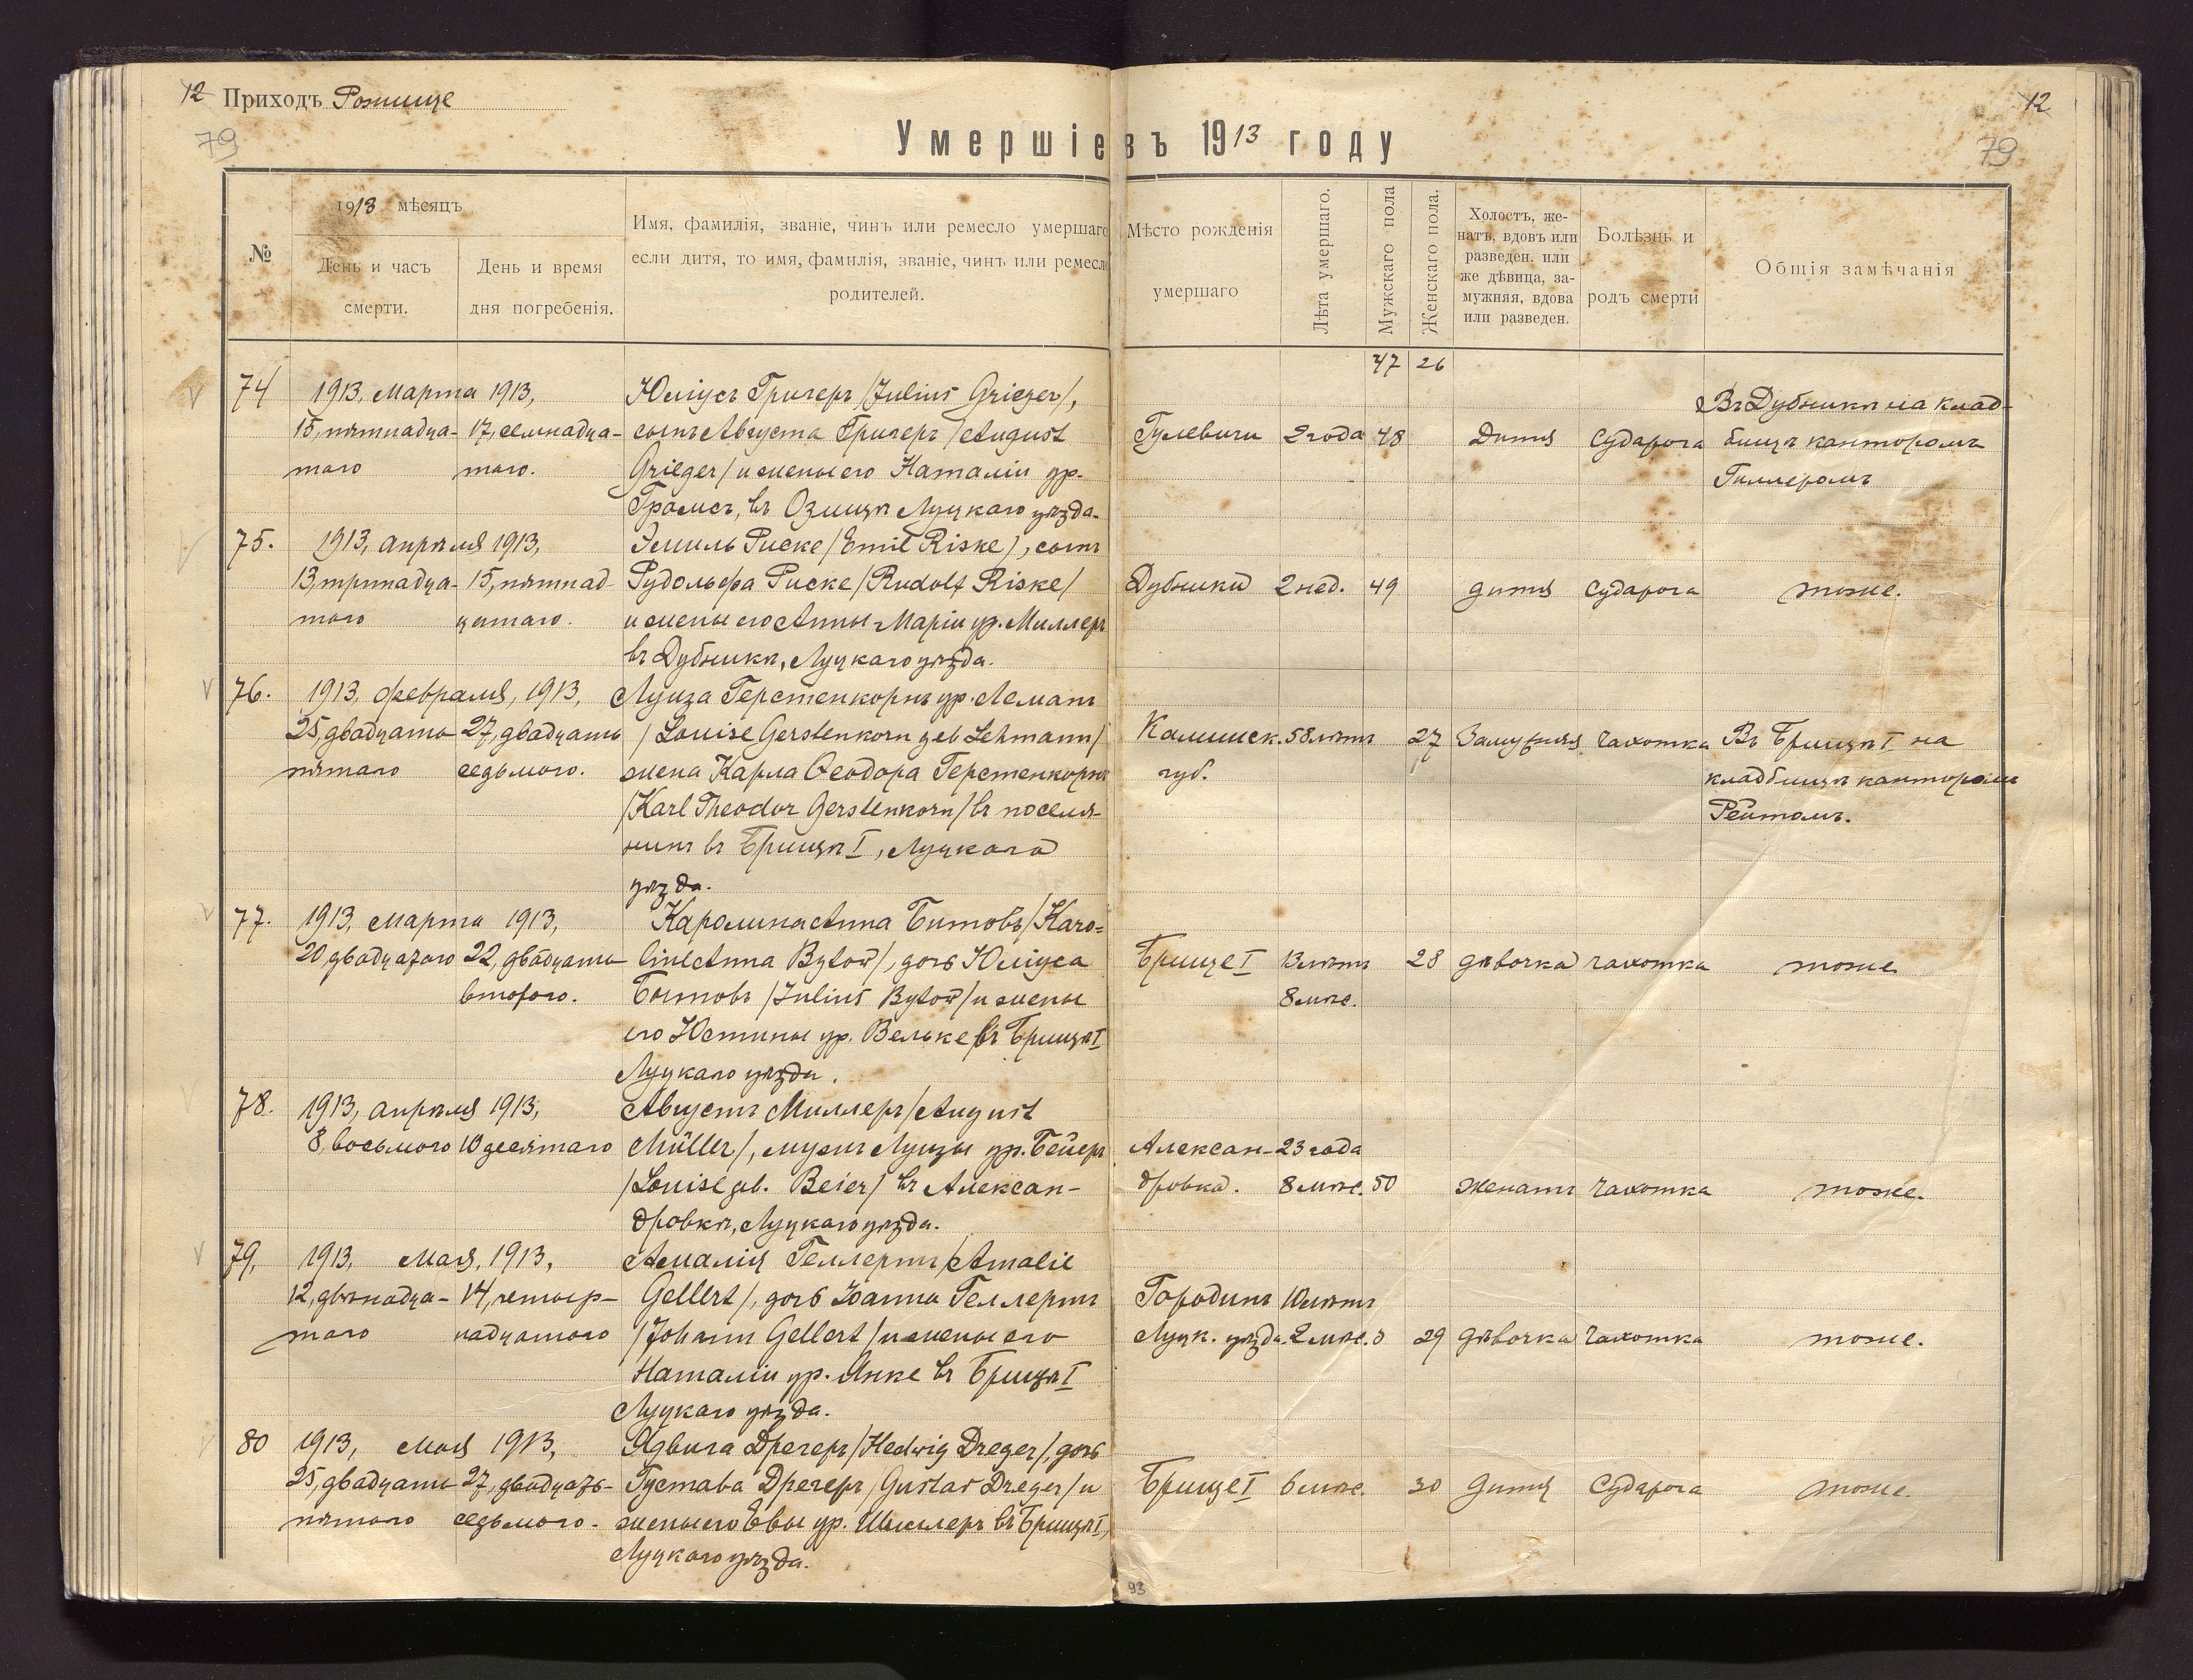 12 Приходъ Рожище
12
79
79
Умершіе въ 1913 году
№
1913 мѣсяцъ
День и часъ
смерти.
День и время
дня погребенія.
Имя, фамилія, званіе, чинъ или ремесло умершаго
если дитя, то имя, фамилія, званіе, чинъ или ремесло
родителей.
Мѣсто рожденія
умершаго
Лѣта умершаго.
Мужскаго пола
Женскаго пола.
Холостъ, же-
натъ, вдовъ или
разведен. или
же дѣвица, за-
мужняя, вдова
или разведен.
Болѣзнь и
родъ смерти
Общія замѣчанія
47 26
74 1913, Марта 1913, Юліусъ Григеръ /Julius Grieger/, Въ Дубникѣ на клад-
15, пятнадца- 17, семнадца- сынъ Августа Григеръ /August Гулевичи 2 года 48 Дитя Судорога бищѣ канторомъ
таго таго. Grieger/ и жены его Наталіи ур. Гиллеромъ
въ Озищѣ Луцкаго уѣзда.
75. 1913, Апрѣля 1913, Эмиль Риске /Emil Riske/, сынъ
13, тринадца- 15, пятнад- Рудольфа Риске /Rudolf Riske/ Дубники 2 нед. 49 дитя судорога тоже.
таго цатаго. и жены его Анны-Маріи ур. Миллеръ
въ Дубникѣ, Луцкаго уѣзда.
76. 1913, Февраля, 1913, Луиза Герстенкорнъ ур. Леманъ
25, двадцать 27, двадцать /Louise Gerstenkorn geb Lehmann/ Калишск. 58 лѣтъ 27 Замужняя чахотка Въ Брищѣ I на
пятаго седьмого. жена Карла Ѳеодора Герстенкорнъ губ. кладбищѣ канторомъ
/Karl Theodor Gerstenkorn/ въ поселя- Рейтомъ.
нинъ въ Брищѣ I, Луцкаго
уѣзда.
77. 1913, Марта 1913, Каролина Анна Битовъ /Karo-
20 двадцатаго 22, двадцать line Anna Bytow/, дочь Юліуса Брище I 13 лѣтъ 28 дѣвочка чахотка тоже
второго. Битовъ /Julius Bytow/ и жены 8 мѣс.
его Юстины ур. Вельке въ Брищѣ I
Луцкаго уѣзда.
78. 1913, Апрѣля 1913, Августъ Миллеръ /August
8, восьмого 10 десятаго Müller/, мужъ Луизы ур. Бейеръ Алексан- 23 года
/Louise geb. Beier/ въ Алексан- дровка. 8 мѣс. 50 женатъ чахотка тоже.
дровкѣ, Луцкаго уѣзда.
79, 1913, Мая, 1913, Амалія Геллертъ /Amalie
12, двѣнадца- 14, четыр- Gellert/, дочь Іоанна Геллертъ Городинъ 10 лѣтъ
таго надцатого /Johann Gellert/ и жены его Луцк. уѣзда. 2 мѣс. 29 дѣвочка чахотка тоже.
Наталіи ур. Янке въ Брищѣ I
Луцкаго уѣзда.
80 1913, Мая 1913, Ядвига Дрегеръ /Hedwig Dreger/, дочь
25, двадцать 27, двадцать- Густава Дрегеръ /Gustav Dreger/ и Брище I 6 мѣс. 30 дитя Судорога тоже.
пятаго седьмого. жены его Евы ур. въ Брищѣ I,
Луцкаго уѣзда.
93